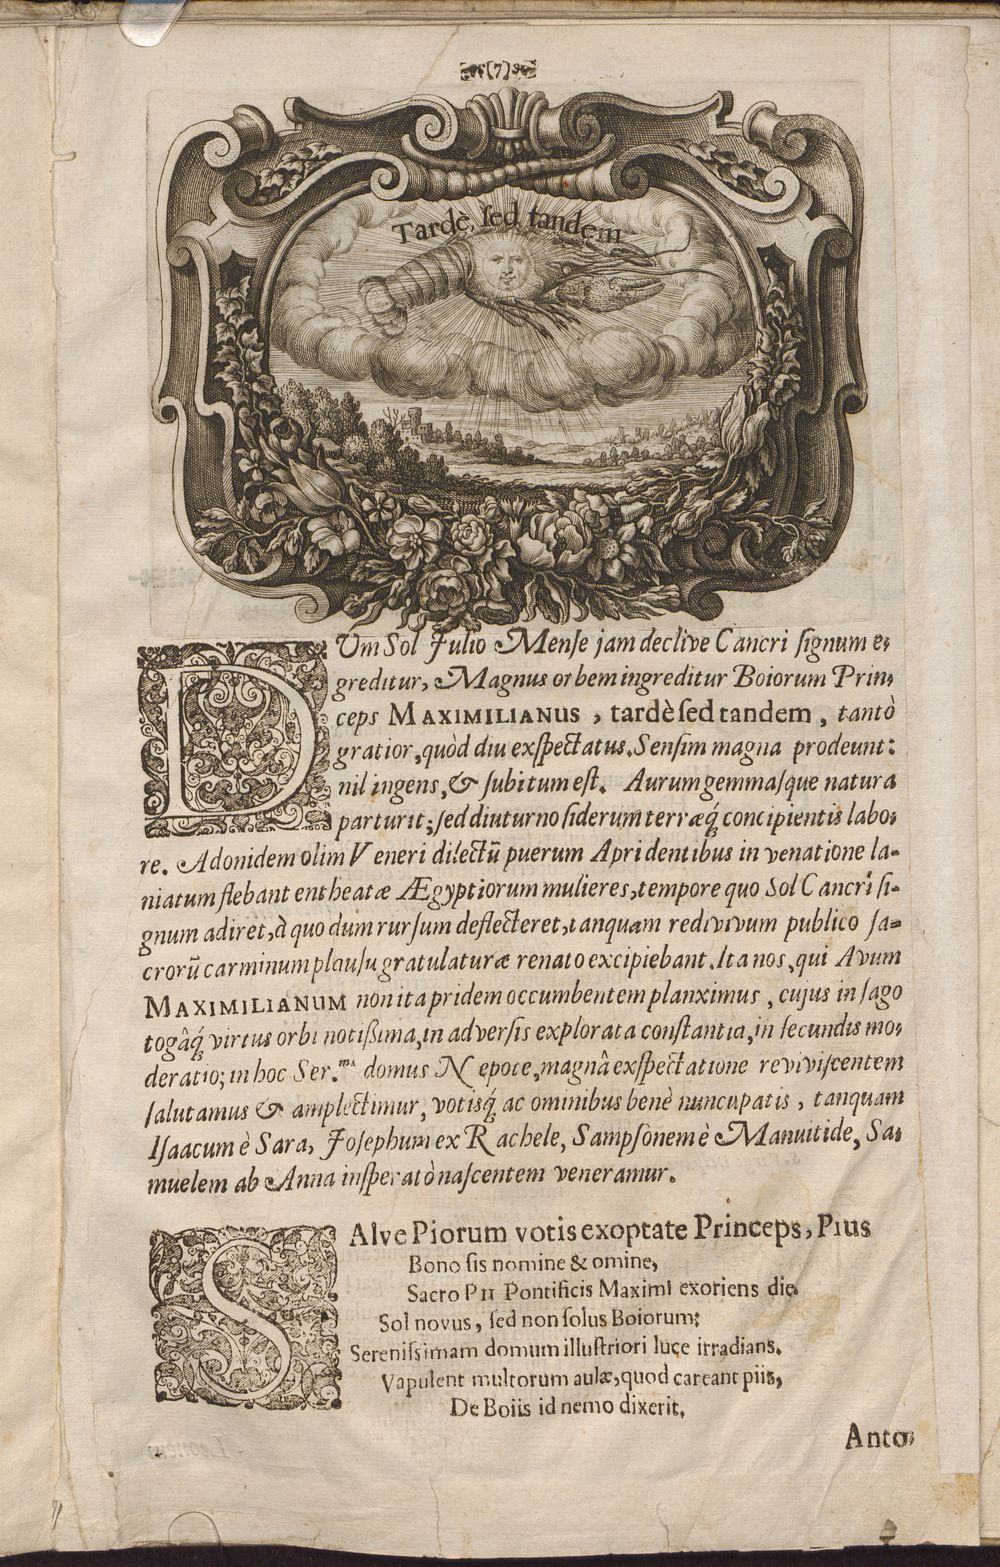 (7)
Tardè, sed tandem
DUm Sol Julio Mense jam declive Cancri signum e-
greditur, Magnus orbem ingreditur Boiorum Prin-
ceps MAXIMILIANUS, tardè sed tandem, tantò
gratior, quòd diu exspectatus. Sensim magna prodeunt:
nil ingens, & subitum est. Aurum gemmasque natura
parturit; sed diuturno siderum terræq́ concipientis labo-
re. Adonidem olim Veneri dilectū puerum Apri dentibus in venatione la-
niatum flebant entheatæ Ægyptiorum mulieres, tempore quo Sol Cancri si-
gnum adiret, à quo dum rursum deflecteret, tanquam redivivum publico sa-
crorū carminum plausu gratulaturæ renato excipiebant. Ita nos, qui Avum
MAXIMILIANUM non ita pridem occumbentem planximus, cujus in sago
togâq́ virtus orbi notißima, in adversis explorata constantia, in secundis mo-
deratio; in hoc Ser.mæ domus Nepote, magnâ exspectatione reviviscentem
salutamus & amplectimur, votisq́ ac ominibus benè nuncupatis, tanquam
Isaacum è Sara, Josephum ex Rachele, Sampsonem è Manuitide, Sa-
muelem ab Anna insperatò nascentem veneramur.
SAlve Piorum votis exoptate Princeps, Pius
Bono sis nomine & omine,
Sacro PII Pontificis Maximi exoriens die.
Sol novus, sed non solus Boiorum;
Serenissimam domum illustriori luce irradians.
Vapulent multorum aulæ, quod careant piis,
De Boiis id nemo dixerit.
Anto-